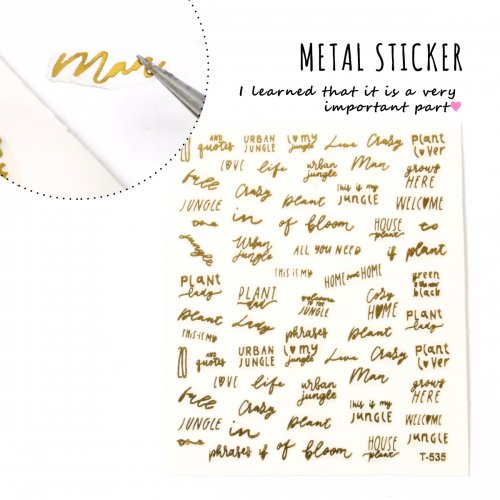 METAL STICKER
I learned that it is a very
important part
Man
and quotes URBAN JUNGLE I my jungle Love Crazy Plant Lover
LOVE life urban jungle Man grows HERE
full Crazy plant This is my JUNGLE WELCOME
JUNGLE one in of bloom HOUSE plant to
jungle Urban Jungle ALL YOU NEED if plant
THIS IS MY HOME HOME green is the new black
PLANT lady PLANT welcome TO THE JUNGLE Cosy HOME PLANT lady
THIS IS MY Plant Lady phrases Plant
and quotes URBAN JUNGLE I my jungle Love Crazy Plant Lover
LOVE life urban jungle Man grows HERE
full Crazy Plant This is my JUNGLE WELCOME
one in JUNGLE
phrases if of bloom HOUSE plant T-535